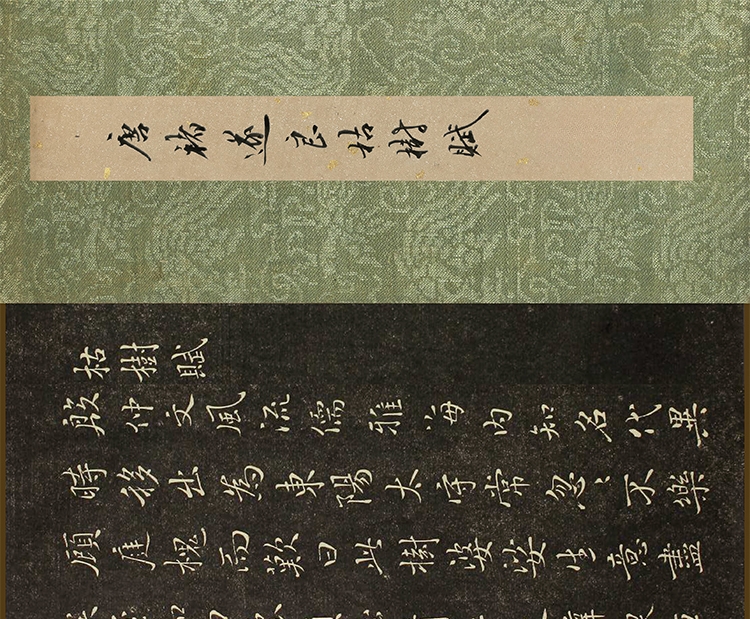 唐褚遂良枯樹賦
枯樹賦
殷仲文風流儒雅海内知名代異
時移出為東陽太守常忽〻不樂
顧庭槐而歎曰此樹婆娑生意盡